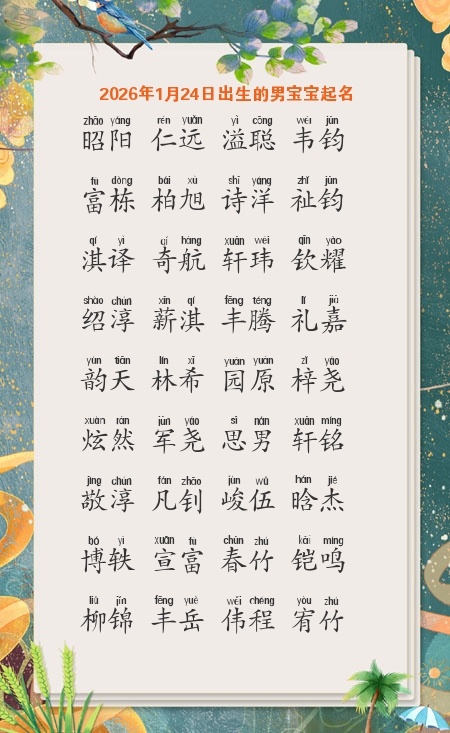 2026年1月24日出生的男宝宝起名
zhāo yáng rén yuǎn yì cōng wéi jūn
昭阳 仁远 溢聪 韦钧
fù dòng bǎi xù shī yáng zhǐ jūn
富栋 柏旭 诗洋 祉钧
qí yì qí háng xuān wěi qīn yào
淇译 奇航 轩玮 钦耀
shào chún xīn qí fēng téng lǐ jiā
绍淳 薪淇 丰腾 礼嘉
yùn tiān lín xī yuán yuán zǐ yáo
韵天 林希 园原 梓尧
xuàn rán jūn yáo sī nán xuān míng
炫然 军尧 思男 轩铭
jìng chún fán zhāo jùn wǔ hán jié
敬淳 凡钊 峻伍 晗杰
bó yì xuān fù chūn zhú kǎi míng
博轶 宣富 春竹 铠鸣
liǔ jǐn fēng yuè wěi chéng yòu zhú
柳锦 丰岳 伟程 宥竹